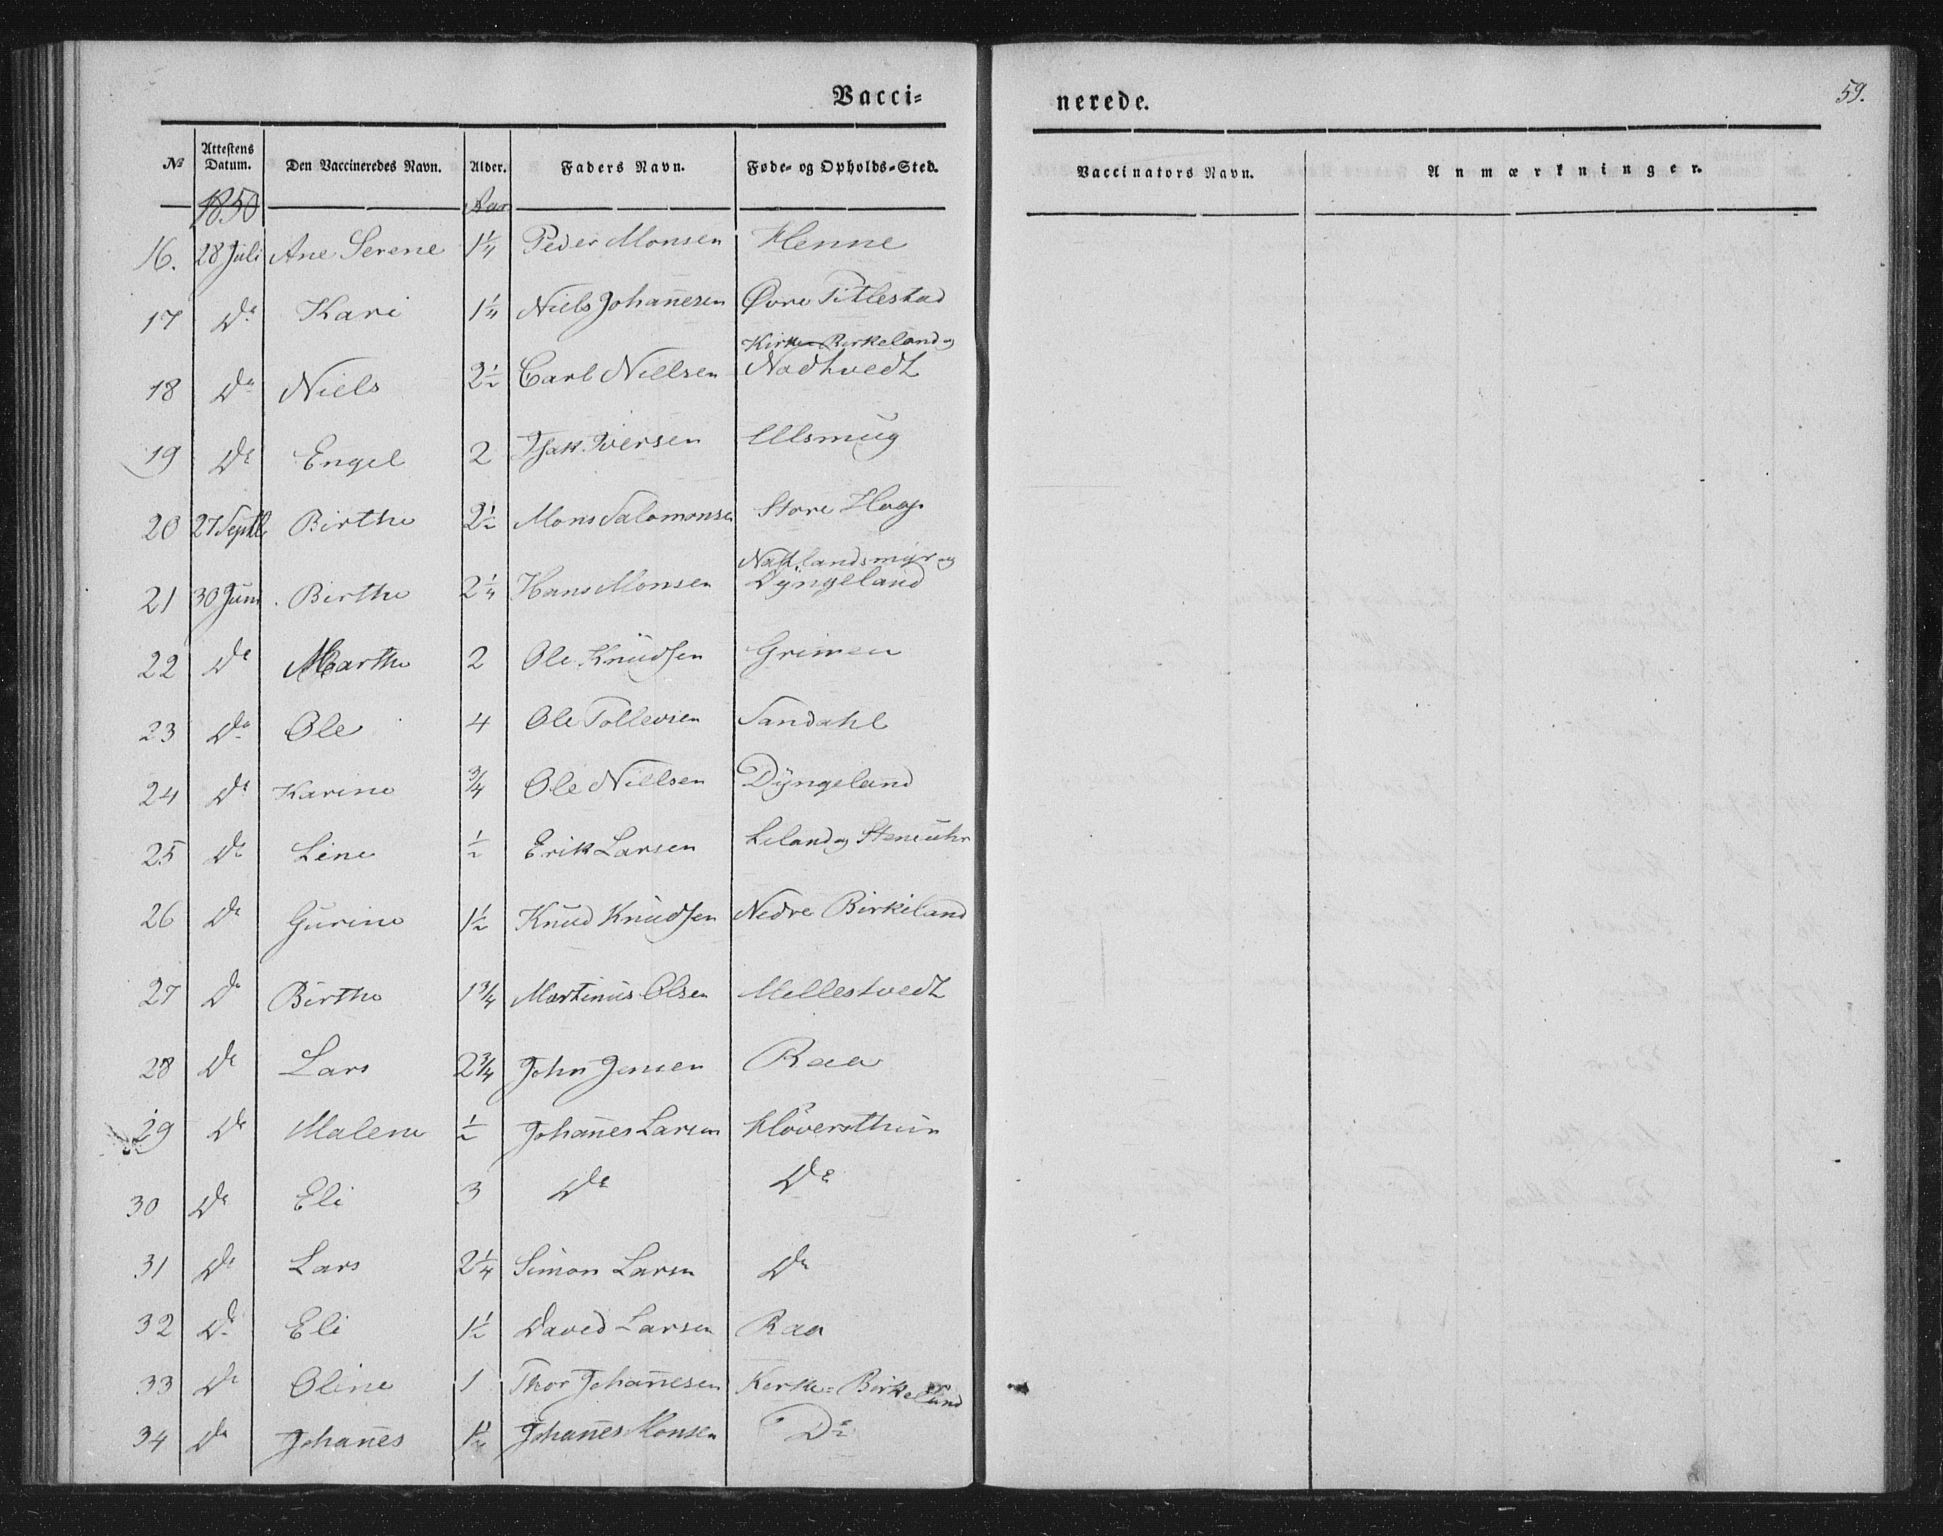 Vacci=
nerede.
59.
No Attestens Datum. Den Vaccineredes Navn. Alder. Faders Navn. Føde- og Opholds-Sted. Vaccinators Navn. Anmærkninger.
1850 Aar
16. 28 Juli Ane Serene 1¼ Peder Monsen Henne
17 Do Kari 1¼ Niels Johan̄esen Øvre Titlestad
Kirke Birkeland og
18 Do Niels 2½ Carl Nielsen Nadhvedt
19 De Engel 2 Isak Iversen Ulsmug
20 27 Septb Birthe 2½ Mons Salomonsen Store Houg
Natlandsmyr og
21 30 Juni Birthe 2¼ Hans Monsen Dyngeland
22 De Marthe 2 Ole Knudsen Grimen
23 Do Ole 4 Ole Tollevsen Sandahl
24 De Karine ¾ Ole Nielsen Dyngeland
25 De Line ½ Erik Larsen Leland og
26 De Gurine 1½ Knud Knudsen Nedre Birkeland
27 De Birthe 1¾ Martinus Olsen Mellestvedt
28 De Lars 2¾ John Jensen Raa
29 De Malene ½ Johan̄es Larsen Kløverthun
30 De Eli 3 De De
31 De Lars 2¼ Simon Larsn De
32 De Eli 1½ David Larsen Raa
33 De Oline 1 Thor Johan̄esen Kirke= Birkeland
34 De Johan̄es Johan̄es Monsen De